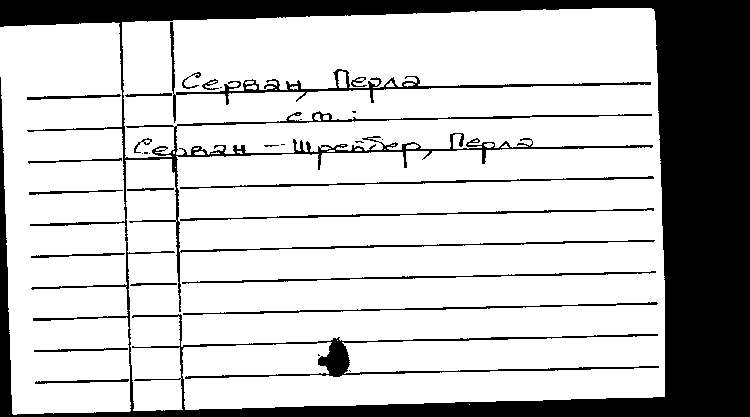 Серван, Перла
см:
Серван - Шрейбер, Перла